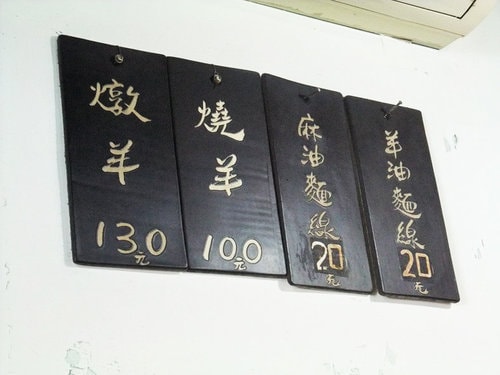 燉羊
130元
燒羊
100元
麻油麵線
20元
羊油麵線
20元